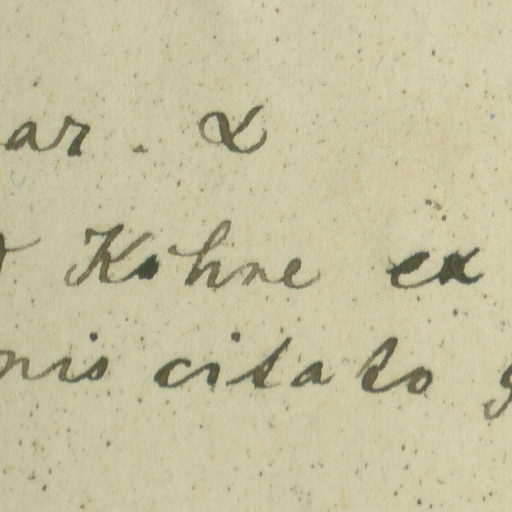 ar. α
Kohne ex
nis citato